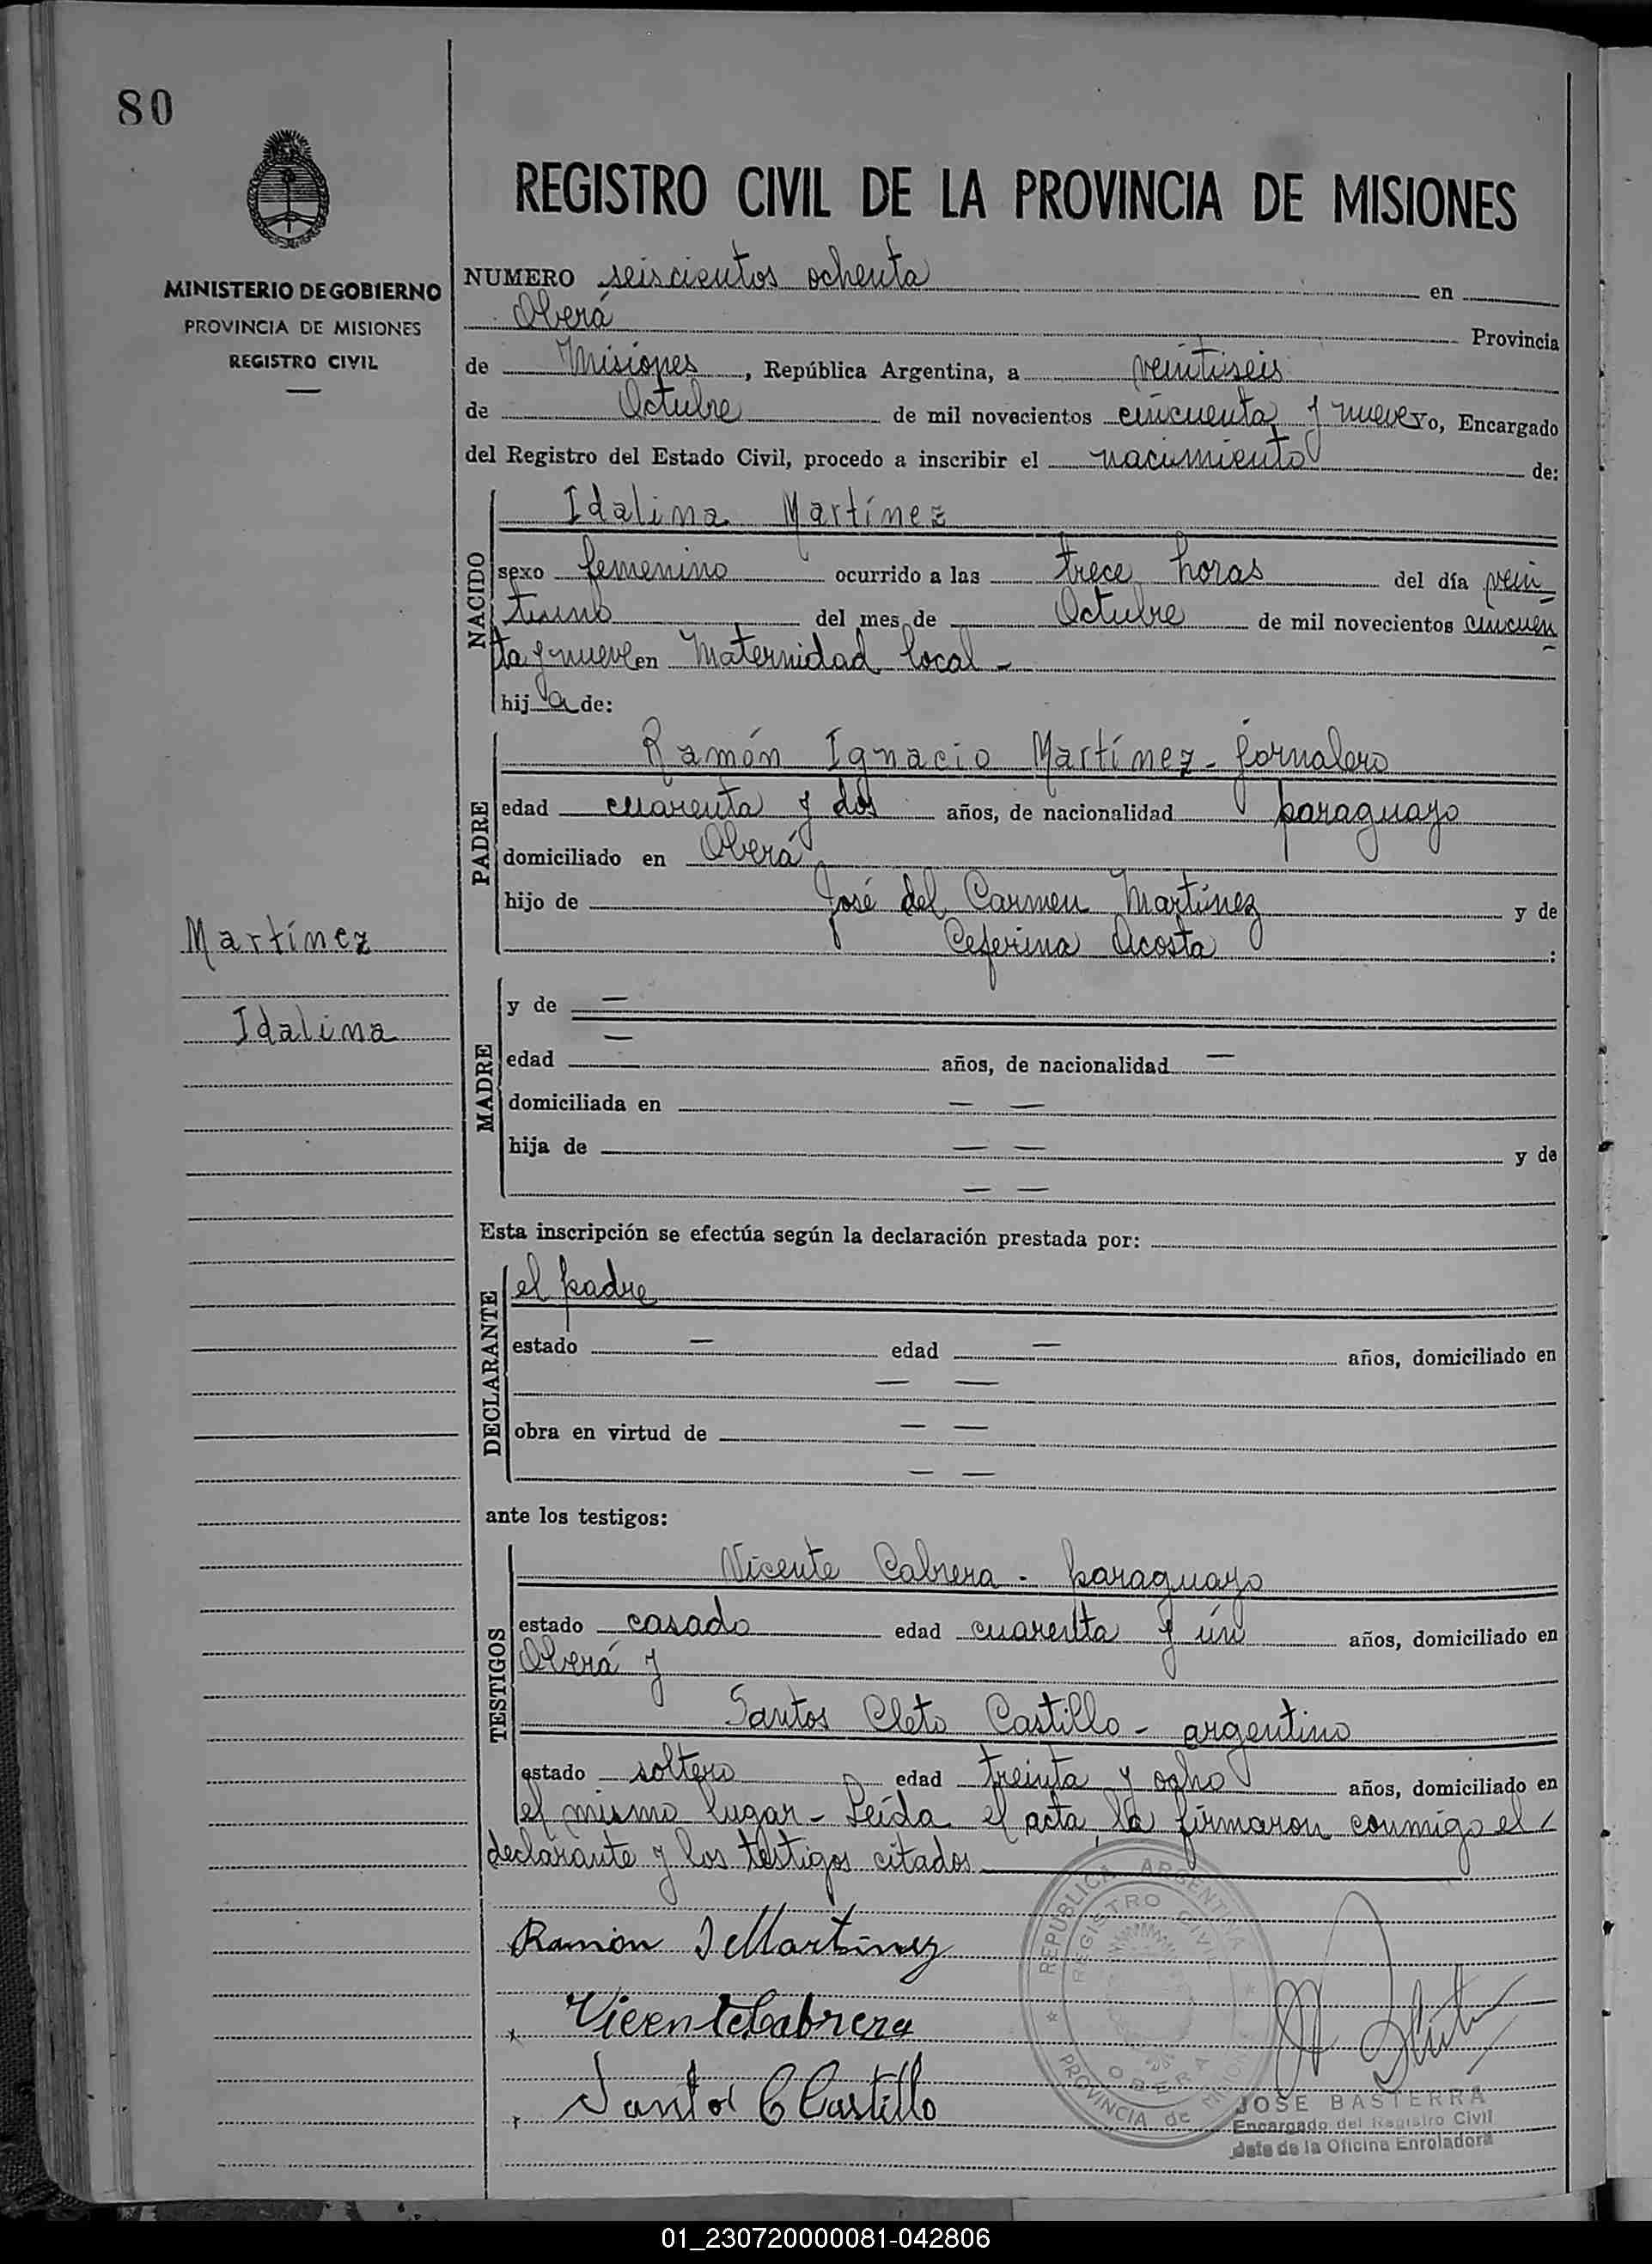 80
REGISTRO CIVIL DE LA PROVINCIA DE MISIONES
MINISTERIO DE GOBIERNO
PROVINCIA DE MISIONES
REGISTRO CIVIL
NUMERO seiscientos ochenta en
Oberá Provincia
de Misiones, República Argentina, a veintiseis
de Octubre de mil novecientos cincuenta y nueve Yo, Encargado
del Registro del Estado Civil, procedo a inscribir el nacimiento de:
NACIDO
Idalina Martínez
sexo femenino ocurrido a las trece horas del día vein
tiuno del mes de Octubre de mil novecientos cincuen
ta y nueve en Maternidad local -
hij a de:
PADRE
Ramón Ignacio Martínez - jornalero
edad cuarenta y dos años, de nacionalidad paraguayo
domiciliado en Oberá
hijo de José del Carmen Martínez y de
Ceferina Acosta :
Martínez
Idalina
MADRE
y de —
edad — años, de nacionalidad —
domiciliada en — —
hija de — — y de
— —
Esta inscripción se efectúa según la declaración prestada por:
DECLARANTE
el padre
estado — edad — años, domiciliado en
— —
obra en virtud de — —
— —
ante los testigos:
TESTIGOS
Vicente Cabrera - paraguayo
estado casado edad cuarenta y ún años, domiciliado en
Oberá y
Santos Cleto Castillo - argentino
estado soltero edad treinta y ocho años, domiciliado en
el mismo lugar - Leída el acta, la firmaron conmigo el
declarante y los testigos citados
Ramón I Martinez
Vicente Cabrera
Santos C Castillo
REPUBLICA ARGENTINA
REGISTRO CIVIL
OBERA
PROVINCIA de MISIONES
JOSE BASTERRA
Encargado del Registro Civil
Jefe de la Oficina Enroladora
01_230720000081-042806